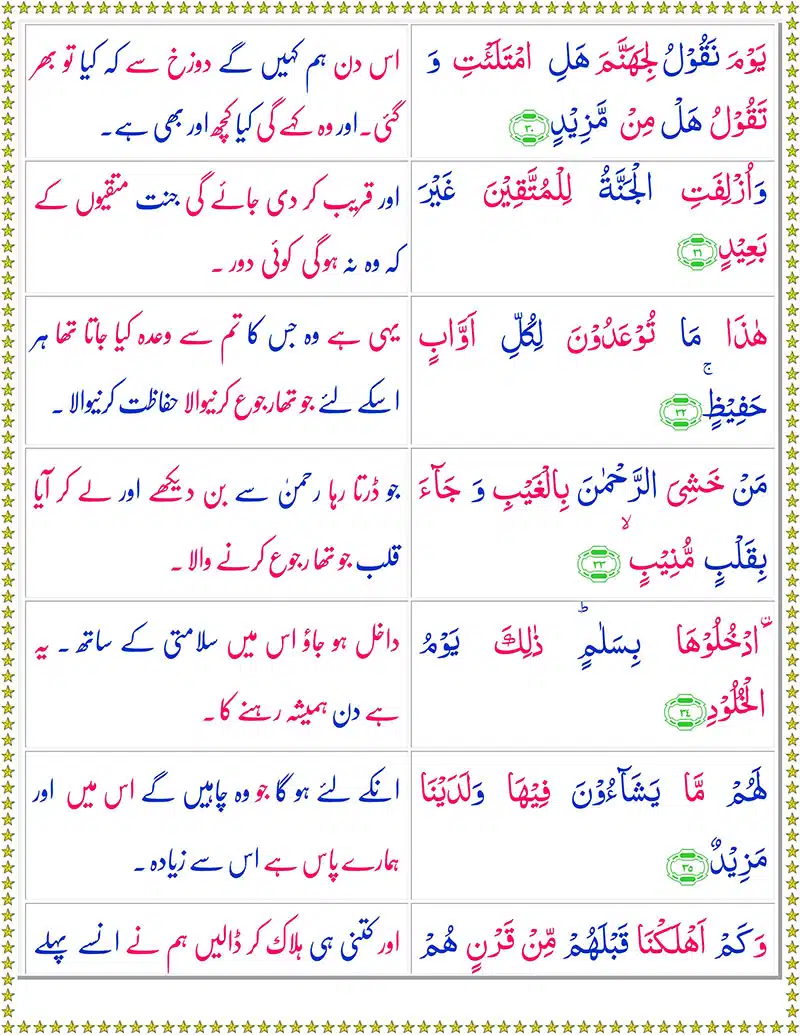 يَوْمَ نَقُوْلُ لِجَهَنَّمَ هَلِ امْتَلَئْتِ وَ
تَقُوْلُ هَلْ مِنْ مَّزِيْدٍ ۝۳۰
اس دن ہم کہیں گے دوزخ سے کہ کیا تو بھر
گئی۔ اور وہ کہے گی کیا کچھ اور بھی ہے۔
وَاُزْلِفَتِ الْجَنَّةُ لِلْمُتَّقِيْنَ غَيْرَ
بَعِيْدٍ ۝۳۱
اور قریب کر دی جائے گی جنت متقیوں کے
کہ وہ نہ ہوگی کوئی دور ۔
هٰذَا مَا تُوْعَدُوْنَ لِكُلِّ اَوَّابٍ
حَفِيْظٍۚ ۝۳۲
یہی ہے وہ جس کا تم سے وعدہ کیا جاتا تھا ہر
اسکے لئے جو تھا رجوع کرنیوالا حفاظت کرنیوالا ۔
مَنْ خَشِىَ الرَّحْمٰنَ بِالْغَيْبِ وَ جَآءَ
بِقَلْبٍ مُّنِيْبٍۙ ۝۳۳
جو ڈرتا رہا رحمنٰ سے بن دیکھے اور لے کر آیا
قلب جو تھا رجوع کرنے والا ۔
۟ادْخُلُوْهَا بِسَلٰمٍؕ ذٰلِكَ يَوْمُ
الْخُلُوْدِ ۝۳۴
داخل ہو جاؤ اس میں سلامتی کے ساتھ ۔ یہ
ہے دن ہمیشہ رہنے کا ۔
لَهُمْ مَّا يَشَآءُوْنَ فِيْهَا وَلَدَيْنَا
مَزِيْدٌ ۝۳۵
انکے لئے ہو گا جو وہ چاہیں گے اس میں اور
ہمارے پاس ہے اس سے زیادہ ۔
وَكَمْ اَهْلَكْنَا قَبْلَهُمْ مِّنْ قَرْنٍ هُمْ
اور کتنی ہی ہلاک کر ڈالیں ہم نے انسے پہلے